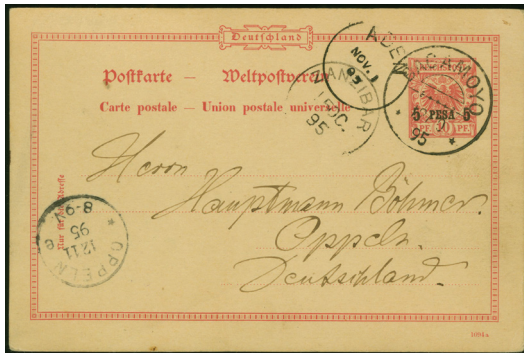 Deutschland
Postkarte — Weltpostverein
Carte postale — Union postale universelle
ADEN
NOV. 1
95
ZANZIBAR
OC.
95
BAGAMOYO
95
5 PESA 5
Herrn
Hauptmann Böhmer.
Oppeln.
Deutschland.
Nur für die Adresse
OPPELN
12 11
95
8-9 N
1094a